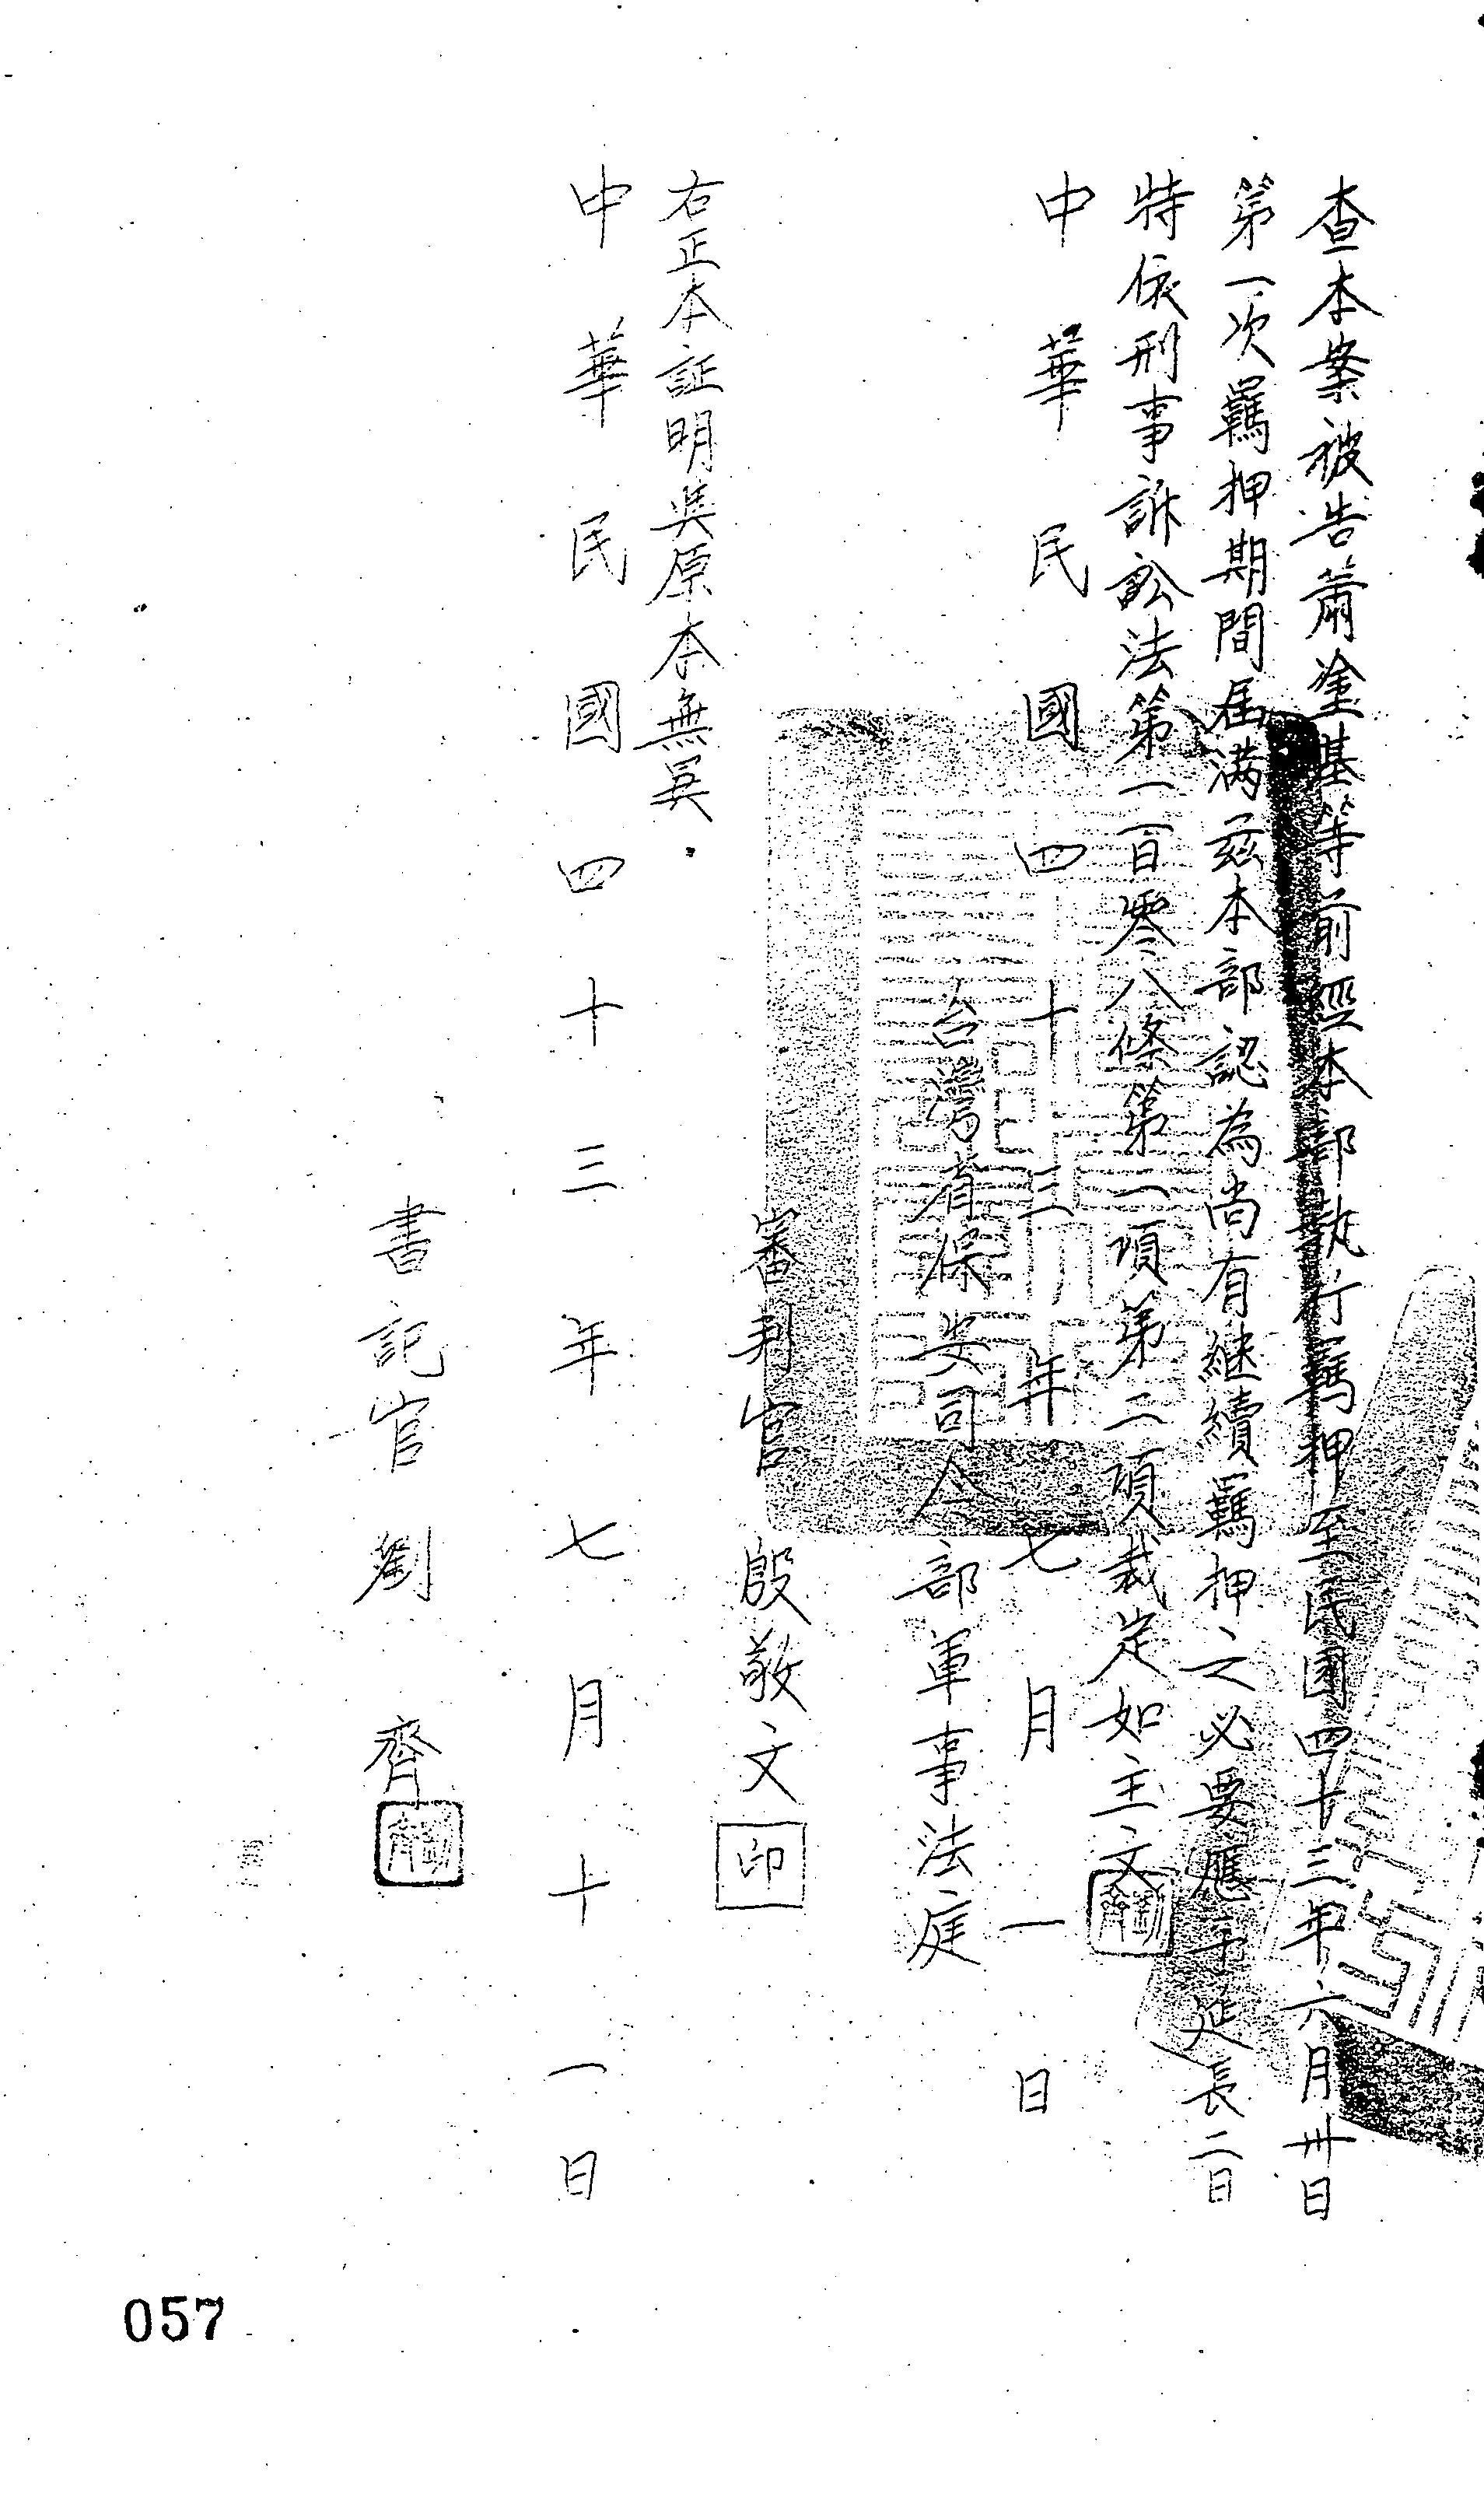 查本案被告蕭塗基等前經本部執行羈押至民國四十三年六月卅日
第一次羈押期間届滿茲本部認為尚有継續羈押之必要應予延長二月
特依刑事訴訟法第一百零八條第一項第二項裁定如主文
中華民國四十三年七月一日
台灣省保安司令部軍事法庭
審判官 殷敬文 印
右正本証明與原本無異.
中華民國四十三年七月十一日
書記官 劉齊
057